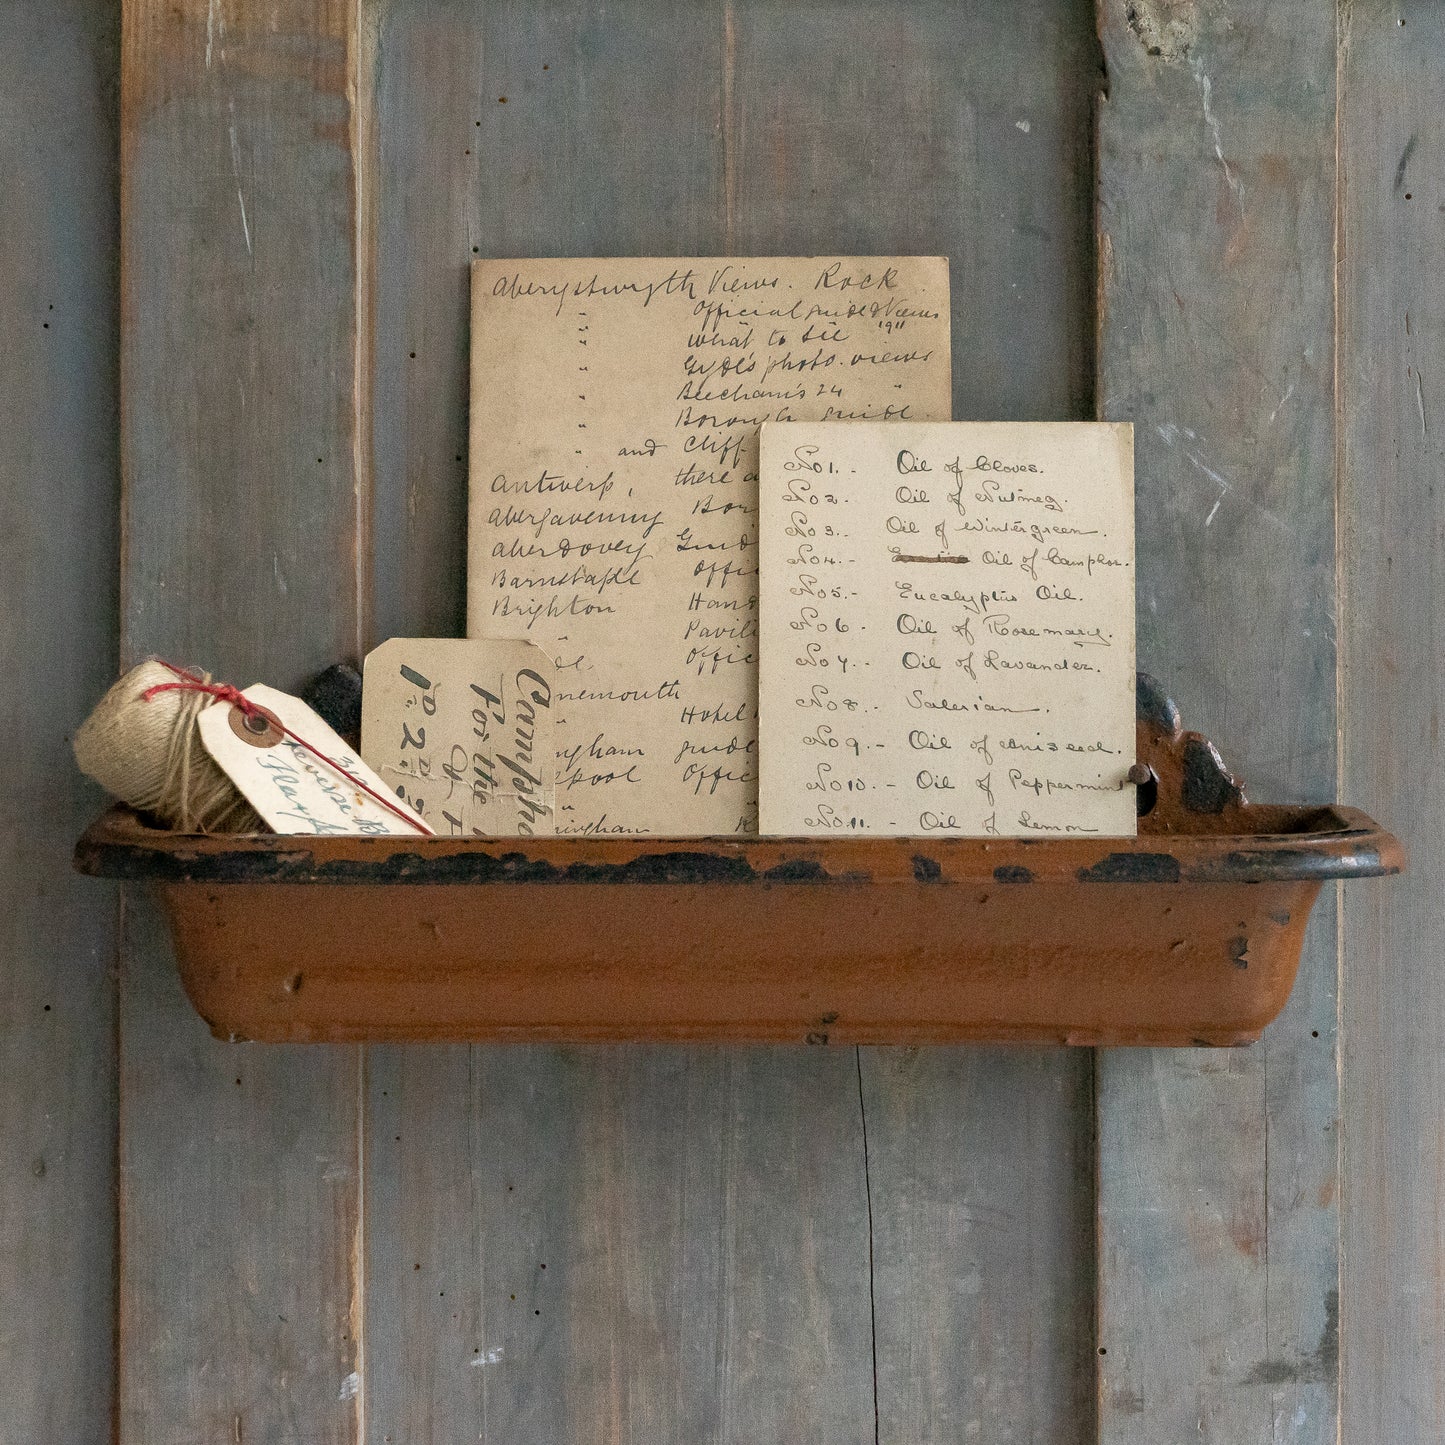 Aberystwyth Views. Rock
" Official guide & Views
" what to see "1911
" Gyde's photo. views
" Beecham's 24 "
" Borough guide
" and Cliff
Antwerp, there a
Abergavenny Bor
Aberdovey Guid
Barnstaple Offi
Brighton Hand
" Pavili
Offic
nemouth
" Hotel
ngham guide
kpool Offic
"
ningham
No 1. - Oil of Cloves.
No 2. - Oil of Nutmeg.
No 3. - Oil of Wintergreen.
No 4. - Oil of Camphor.
No 5. - Eucalyptis Oil.
No 6. - Oil of Rosemary.
No 7. - Oil of Lavander.
No 8. - Valerian.
No 9. - Oil of Aniseed.
No 10. - Oil of Peppermint
No 11. - Oil of Lemon
Campho
For the
Reverse B